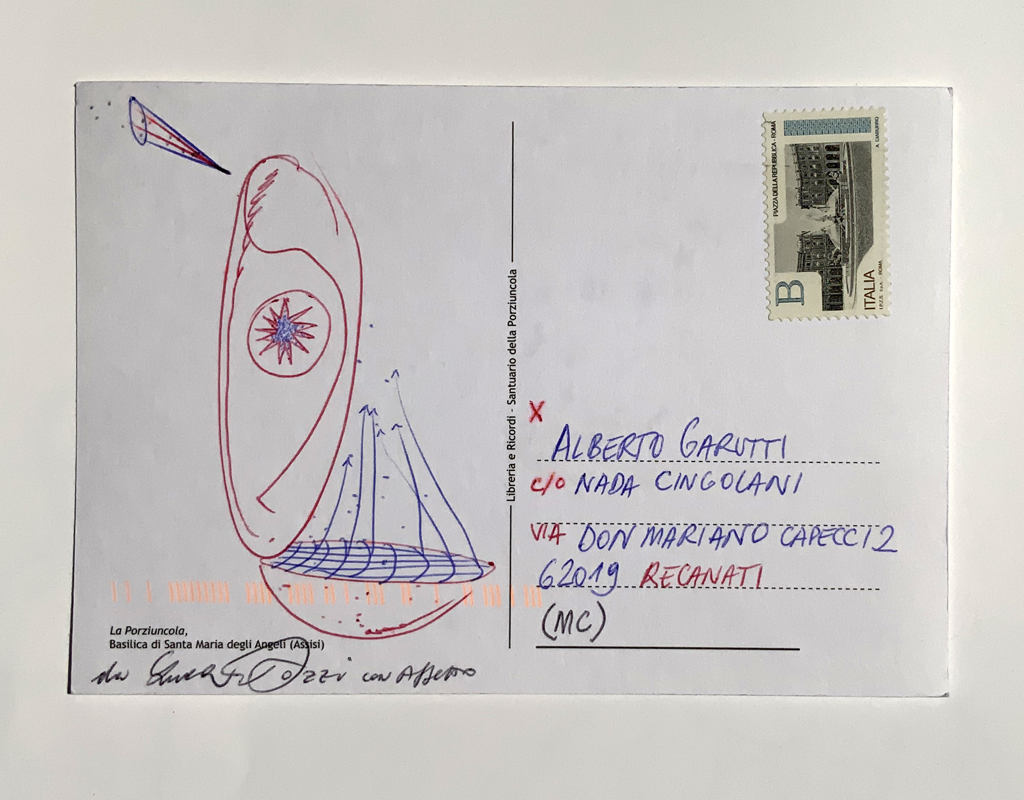 Libreria e Ricordi - Santuario della Porziuncola
PIAZZA DELLA REPUBBLICA - ROMA
B
ITALIA
X
ALBERTO GARUTTI
c/o NADA CINGOLANI
VIA DON MARIANO CAPECCI 2
62019 RECANATI
(MC)
La Porziuncola,
Basilica di Santa Maria degli Angeli (Assisi)
da con Affetto